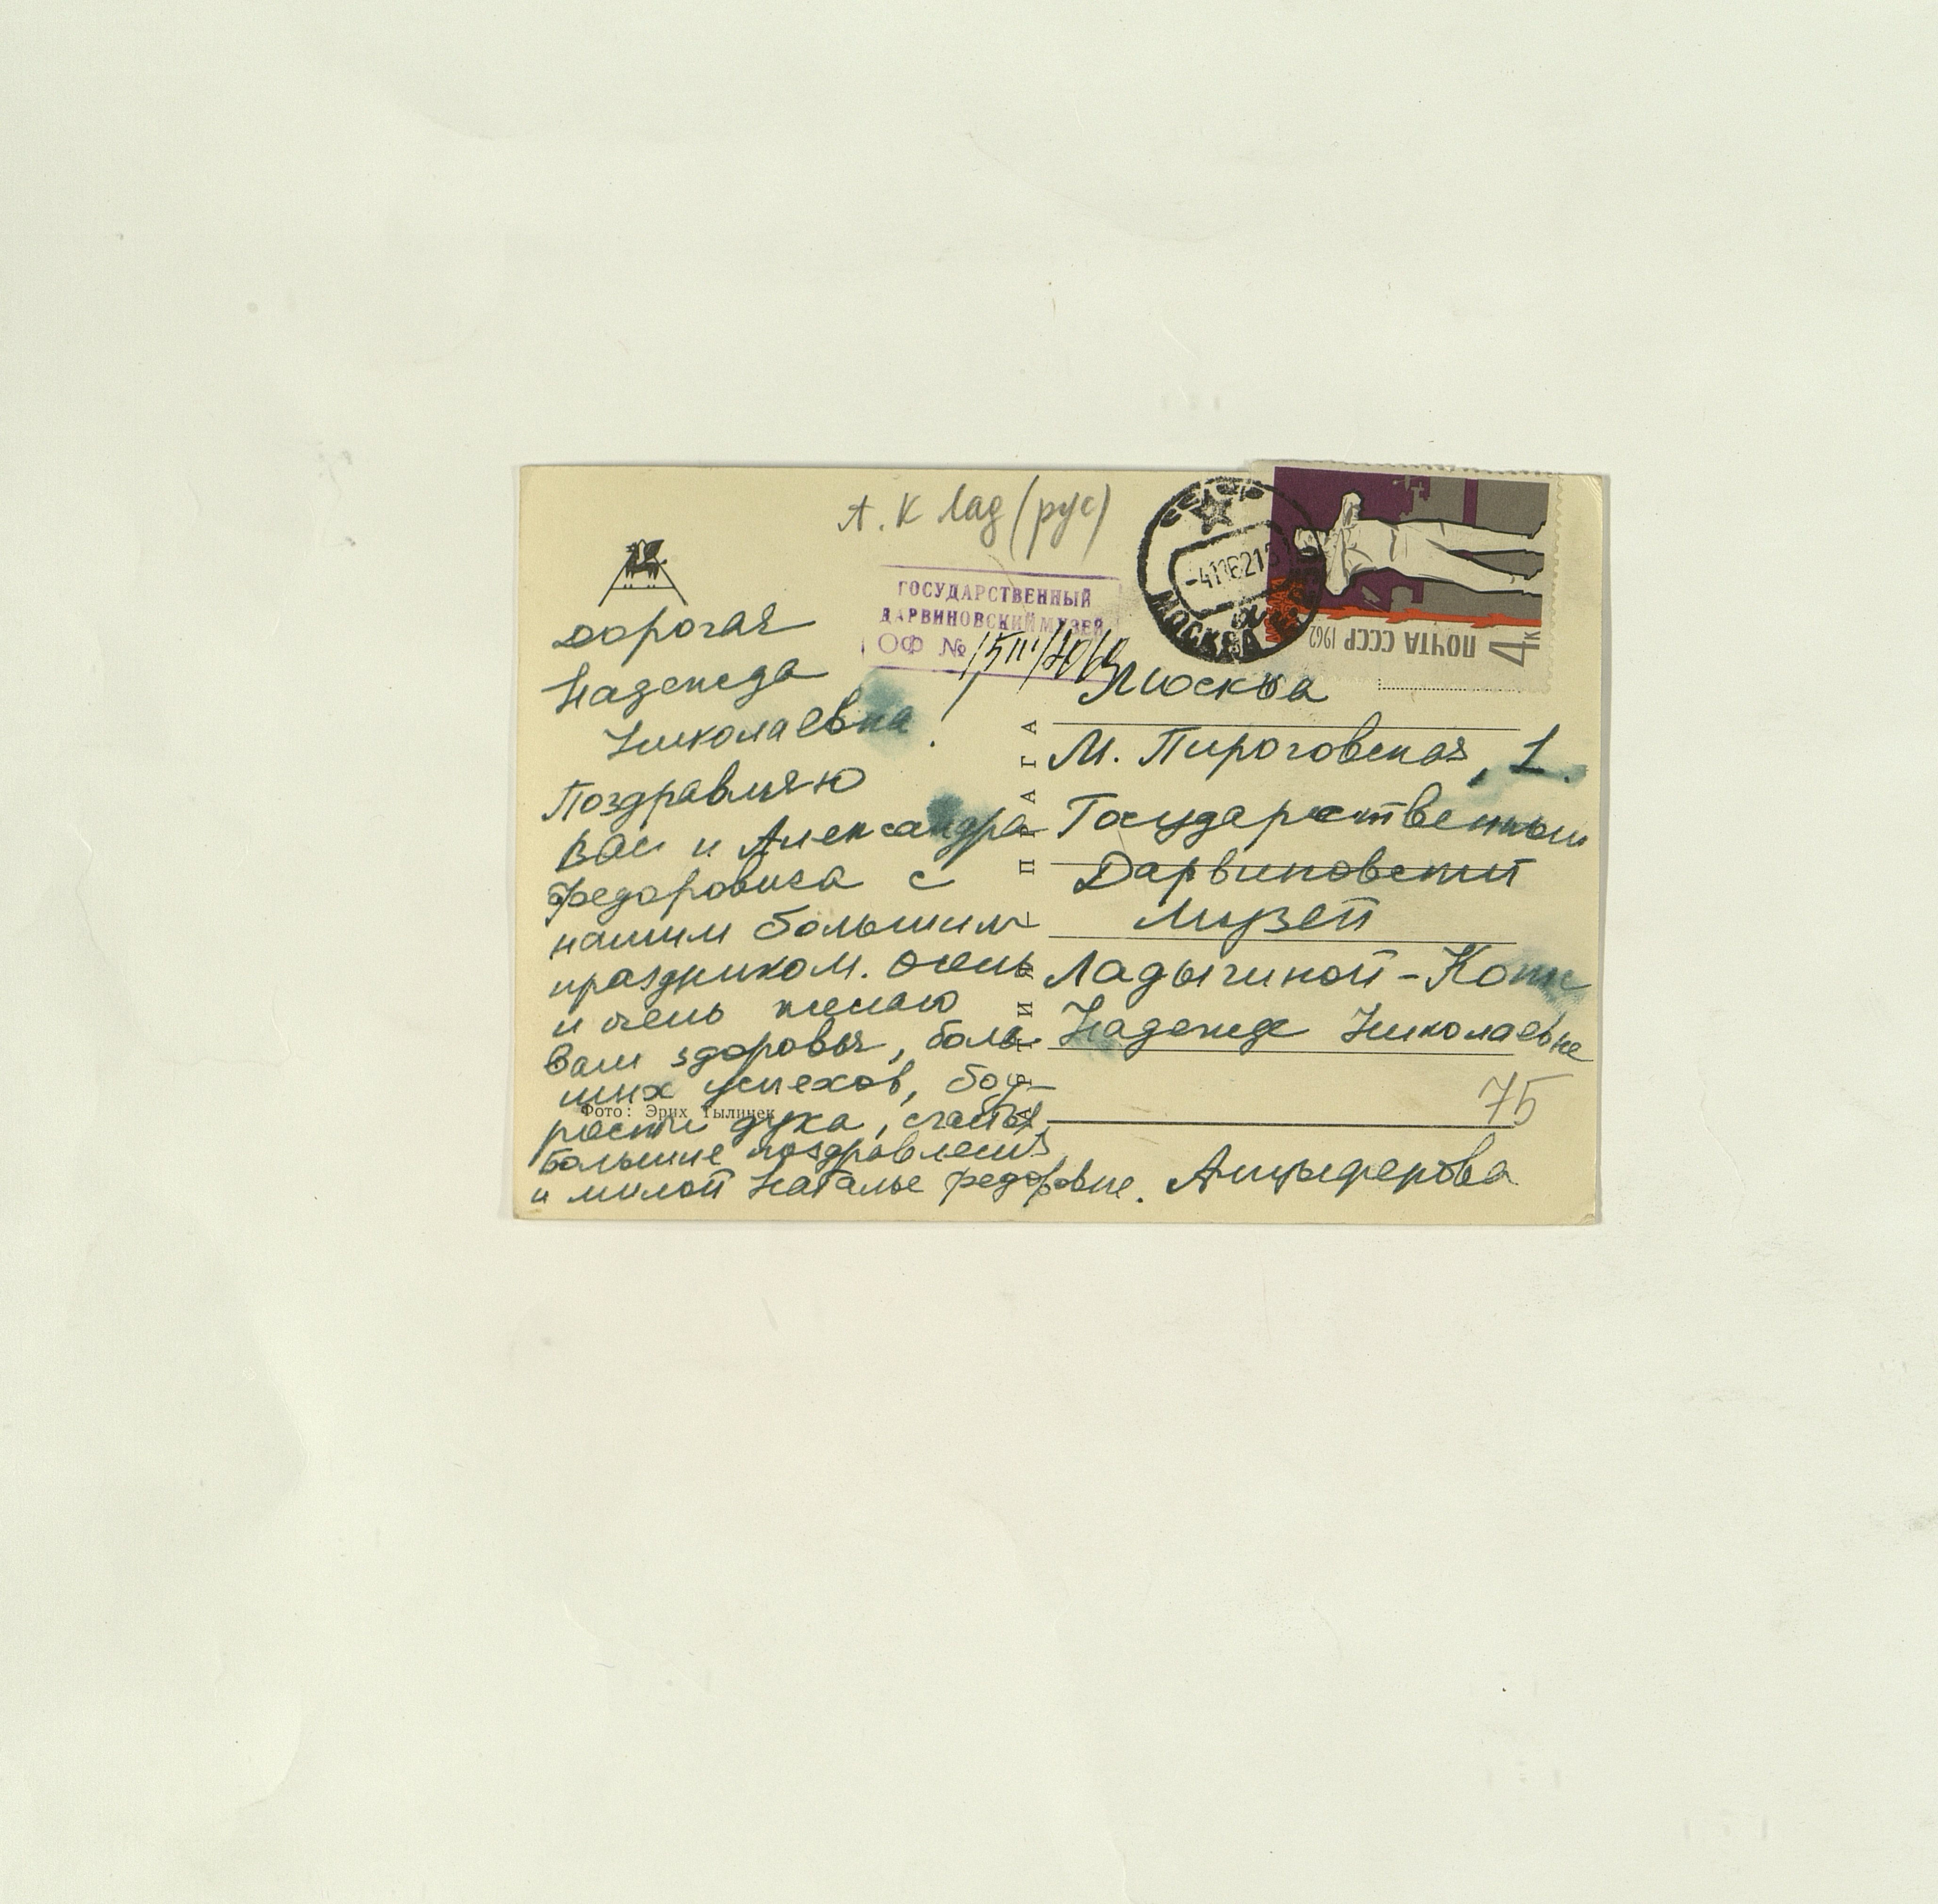 А. К Лад (рус)
ГОСУДАРСТВЕННЫЙ
ДАРВИНОВСКИЙ МУЗЕЙ
ОФ №
СССР
МОСКВА
ПОЧТА СССР 1962
4к
Дорогая
Надежда
Николаевна!
Поздравляю
Вас и Александра
Федоровича с
нашим большим
праздником. Очень
и очень желаю
Вам здоровья, боль-
ших успехов, бод-
рости духа, счастья
Большие поздравления
и милой Наталье Федоровне.
Анцыферова
Фото: Эрих Тылинек
АРТИЯ ПРАГА
Москва
М. Пироговская, 1.
Государственный
Дарвиновский
музей
Ладыгиной-Котс
Надежде Николаевне
75